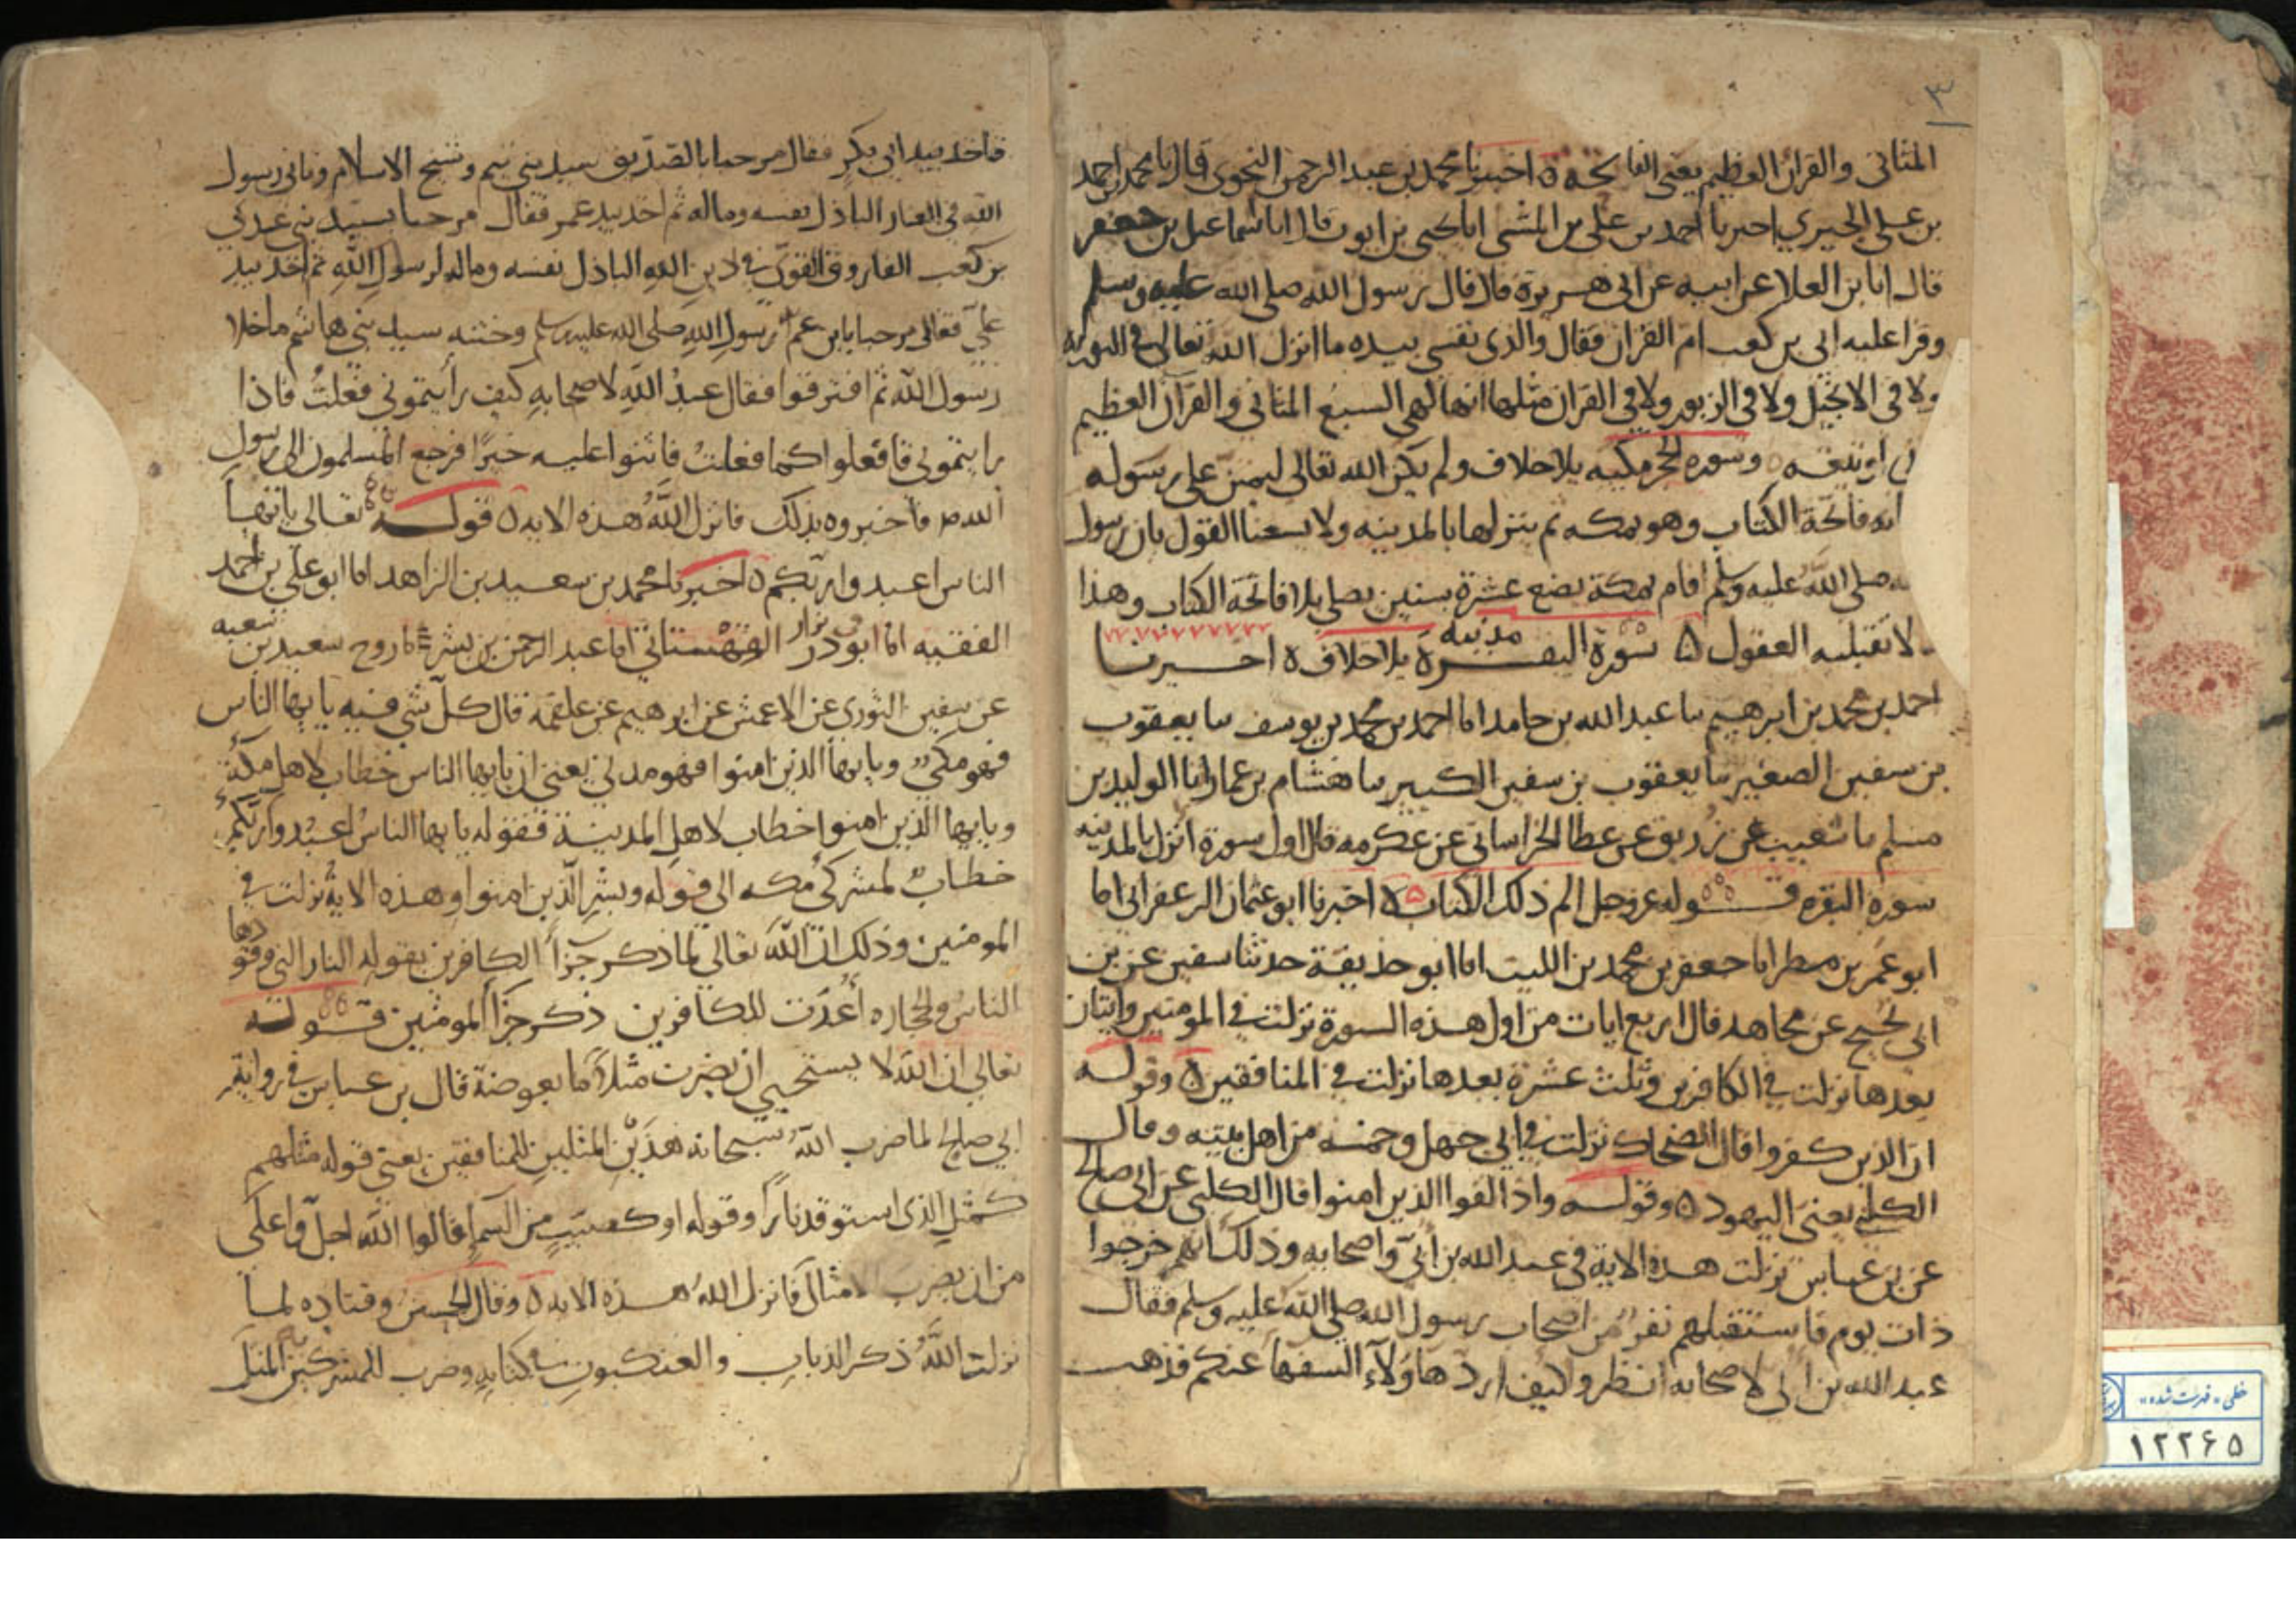 ٣
المثانى والقران العظيم يعنى الفاتحة ه اخبرنا محمد بن عبد الرحمن النحوى قال انا محمد بن احمد
بن على الحيري اخبرنا احمد بن على بن المثنى انا يحيى بن ايوب قال انا اسماعيل بن جعفر
قال انا بن العلا عن ابيه عن ابى هريرة قال قال رسول الله صلى الله عليه وسلم
وقرا عليه ابى بن كعب ام القران فقال والذى نفسى بيده ما انزل الله تعالى فى التورية
ولا فى الانجيل ولا فى الزبور ولا فى القران مثلها انها لهى السبع المثانى والقرآن العظيم
اوتيته ه وسورة الحجر مكيه بلا خلاف ولم يكن الله تعالى ليمتن على رسوله
فاتحة الكتاب وهو بمكه ثم ينزلها بالمدينه ولا يسعنا القول بان رسول
صلى الله عليه وسلم اقام بمكة بضع عشرة سنين يصلى بلا فاتحة الكتاب وهذا
لا تقبله العقول ه سورة البقرة مدنيه بلا خلاف ه اخبرنا
احمد بن محمد بن ابرهيم نا عبد الله بن حامد انا احمد بن محمد بن يوسف نا يعقوب
بن سفين الصغير نا يعقوب بن سفين الكبير نا هشام بن عمار انا الوليد بن
مسلم نا شعيب بن زريق عن عطا الخراسانى عن عكرمه قال اول سورة انزل بالمدينه
سورة البقره قوله عز وجل الم ذلك الكتاب ه اخبرنا ابو عثمان الزعفرانى انا
ابو عمر بن مطر انا جعفر بن محمد بن الليث انا ابو حذيفة حدثنا سفين عن بن
ابى نجيح عن مجاهد قال اربع ايات من اول هذه السورة نزلت فى المومنين وايتان
بعدها نزلت فى الكافرين وثلث عشرة بعدها نزلت فى المنافقين ه وقوله
ان الذين كفروا قال الضحاك نزلت فى ابى جهل وخمسه من اهل بيته وقال
الكلبى يعنى اليهود ه وقوله واذا لقوا الذين امنوا قال الكلبى عن ابى صالح
عن بن عباس نزلت هذه الاية فى عبد الله بن ابىّ واصحابه وذلك انهم خرجوا
ذات يوم فاستقبلهم نفر من اصحاب رسول الله صلى الله عليه وسلم فقال
عبد الله بن ابى لاصحابه انظروا كيف ارد هاولاء السفها عنكم فذهب
فاخذ بيد ابى بكر فقال مرحبا بالصديق سيد بنى تيم وشيخ الاسلام وثانى رسول
الله فى الغار الباذل نفسه وماله ثم اخذ بيد عمر فقال مرحبا بسيد بنى عدى
بن كعب الفاروق القوى فى دين الله الباذل نفسه وماله لرسول الله ثم اخذ بيد
على فقال مرحبا بابن عم رسول الله صلى الله عليه وسلم وختنه سيد بنى هاشم ما خلا
رسول الله ثم افترقوا فقال عبد الله لاصحابه كيف رأيتمونى فعلت فاذا
رايتمونى فافعلوا كما فعلت فاثنوا عليه خيرًا فرجع المسلمون الى رسول
الله فاخبروه بذلك فانزل الله هذه الايه ه قوله تعالى يا ايها
الناس اعبدوا ربكم ه اخبرنا محمد بن سعيد بن الزاهد انا ابو على بن احمد
الفقيه انا ابو ذر القهستانى انا عبد الرحمن بن بشر نا روح سعيد بن شعبه
عن سفين الثورى عن الاعمش عن ابرهيم عن علقمة قال كل شى فيه يا ايها الناس
فهو مكى ويا ايها الذين امنوا فهو مدنى يعنى ان يا ايها الناس خطاب لاهل مكة
ويا ايها الذين امنوا خطاب لاهل المدينة فقوله يا ايها الناس اعبدوا ربكم
خطاب لمشركى مكه الى قوله وبشر الذين امنوا وهذه الاية نزلت فى
المومنين وذلك ان الله تعالى لما ذكر جزآ الكافرين بقوله النار التى وقودها
الناس والحجاره اعدت للكافرين ذكر جزآ المومنين قوله
تعالى ان الله لا يستحيى ان يضرب مثلا ما بعوضة قال بن عباس فى رواية
ابى صالح لما ضرب الله سبحانه هذين المثلين للمنافقين يعنى قوله مثلهم
كمثل الذى استوقد نارًا وقوله او كصيب من السمآ قالوا الله اجل واعلى
من ان يضرب الامثال فانزل الله هذه الايه ه وقال الحسن وقتاده لما
نزلت الله ذكر الذباب والعنكبوت فى كتابه وضرب للمشركين به المثل
خطى «فهرست شده»
١٢٢۶۵